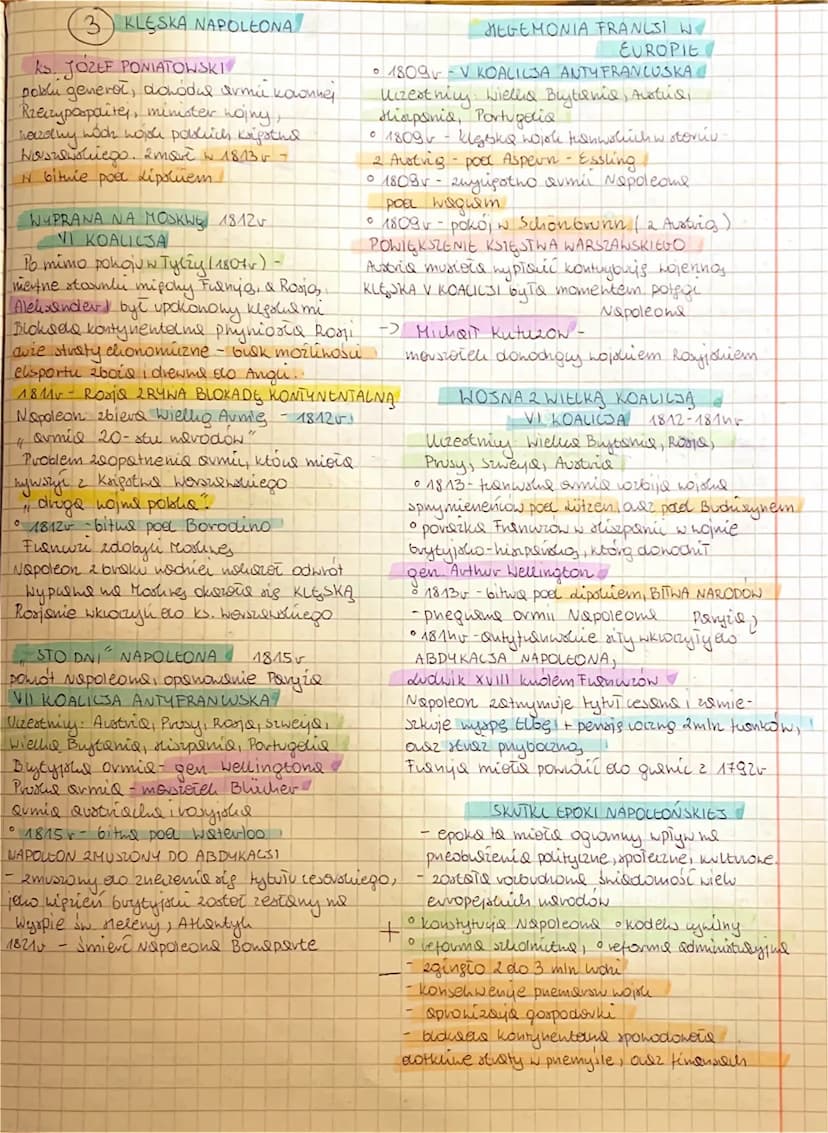 3 KLĘSKA NAPOLEONA
ks. JÓZEF PONIATOWSKI
polski generał, dowódca armii koronnej
Rzeczypospolitej, minister wojny,
naczelny wódz wojsk polskich Księstwa
Warszawskiego. Zmarł w 1813r -
w bitwie pod Lipskiem
WYPRAWA NA MOSKWĘ 1812r
VI KOALICJA
Po mimo pokoju w Tylży (1807r) -
niepewne stosunki między Francją, a Rosją,
Aleksander I był upokorzony klęskami
Blokada kontynentalna przyniosła Rosji
duże straty ekonomiczne - brak możliwości
eksportu zboża i drewna do Anglii.
1811r - Rosja ZRYWA BLOKADĘ KONTYNENTALNĄ
Napoleon zbiera Wielką Armię - 1812r
"armia 20-stu narodów"
Problem zaopatrzenia armii, która miała
wyruszyć z Księstwa Warszawskiego
"druga wojna polska".
° 1812r - bitwa pod Borodino
Francuzi zdobyli Moskwę
Napoleon z braku nadziei nakazał odwrót
Wyprawa na Moskwę okazała się KLĘSKĄ
Rosjanie wkroczyli do ks. Warszawskiego
"STO DNI" NAPOLEONA 1815r
powrót Napoleona, opanowanie Paryża
VII KOALICJA ANTYFRANCUSKA
Uczestnicy: Austria, Prusy, Rosja, Szwecja,
Wielka Brytania, Hiszpania, Portugalia
Brytyjska armia - gen Wellingtona
Pruska armia - marszałek Blücher
armia austriacka i rosyjska
° 1815r - bitwa pod Waterloo
NAPOLEON ZMUSZONY DO ABDYKACJI
- zmuszony do zrzeczenia się tytułu cesarskiego,
jako więzień brytyjski został zesłany na
Wyspie św. Heleny, Atlantyk
1821r - śmierć Napoleona Bonaparte
HEGEMONIA FRANCJI W
EUROPIE
° 1809r - V KOALICJA ANTYFRANCUSKA
Uczestnicy: Wielka Brytania, Austria,
Hiszpania, Portugalia
° 1809r - klęska wojsk francuskich w starciu
z Austrią - pod Aspern - Essling
° 1809r - zwycięstwo armii Napoleona
pod Wagram
° 1809r - pokój w Schönbrunn (z Austrią)
POWIĘKSZENIE KSIĘSTWA WARSZAWSKIEGO
Austria musiała wypłacić kontrybucję wojenną
KLĘSKA V KOALICJI była momentem potęgi
Napoleona
-> Michaił Kutuzow -
marszałek dowodzący wojskiem Rosyjskiem
WOJNA Z WIELKĄ KOALICJĄ
VI KOALICJA 1812-1814r
Uczestnicy: Wielka Brytania, Rosja,
Prusy, Szwecja, Austria
° 1813 - francuska armia rozbija wojska
sprzymierzeńców pod Lützen, oraz pod Budziszynem
° porażka Francuzów w Hiszpanii w wojnie
brytyjsko-hiszpańską, którą dowodził
gen. Arthur Wellington
° 1813r - bitwa pod Lipskiem, BITWA NARODÓW
- przegrana armii Napoleona Paryża
° 1814r - antyfrancuskie siły wkroczyły do
ABDYKACJA NAPOLEONA,
Ludwik XVIII królem Francuzów
Napoleon zatrzymuje tytuł cesarza i zamie-
szkuje wyspę Elbę + pensję roczną 2mln franków,
oraz straż przyboczną
Francja miała powrócić do granic z 1792r
SKUTKI EPOKI NAPOLEOŃSKIEJ
- epoka ta miała ogromny wpływ na
przeobrażenia polityczne, społeczne, kulturowe.
- została rozbudzona świadomość wielu
europejskich narodów
+ ° konstytucja Napoleona ° kodeks cywilny
° reforma szkolnictwa, ° reforma administracyjna
- - zginęło 2 do 3 mln ludzi
- konsekwencje przemarszów wojsk
- aprowizacja gospodarki
- blokada kontynentalna spowodowała
dotkliwe straty w przemyśle, oraz finansach